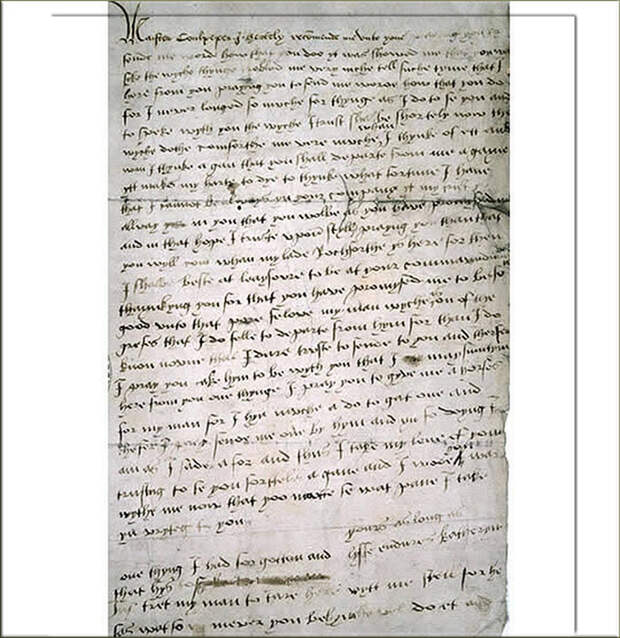 Master Coulpeper I hertely recomende me unto youe praying you to
sende me worde how that you doo yt was showed me that you was
seke the wyche thynge trobled me very muche tell suche tyme that I
here from you praying you to send me worde how that you do
for I never longed so muche for thynge as I do to se you and
to speke wyth you the wyche I trust shall be shortely now the
wyche dothe comforthe me very muche whan I thynke of ett and
wan I thynke a gan that you shall departe from me a gane
ytt makes my harte to dye to thynke what fortune I have
that I cannot be always yn your company yt my trust
allway in you that you wolbe as you have promysed
and in that hope I truste upon styll prayng you than that
you wyll com whan my lade Rochforthe ys here for then
I shalbe beste at leaysoure to be at your commaundmant
thaynkyng you for that you have promysed me to be so
good unto that pore felowe my man wyche ys on of the
grefes that I do felle to departe from hym for than I do
know noone that I dare truste to sende to you and therfor
I pray you take hym to be wyth you that I may sumtym
here from you one thynge I pray you to gyve me a horse
for my man for I hyd muche a do to gat one and
thefor I pray sende me one by hym and yn so doying I
am as I sade a for and thus I take my leve of you
trusting to se you shortele a gane and I wode you was
wythe me now that yoo maitte se wat pane I take
yn wryteg to you
yours as long as
lyffe endures Katheryn
one thyng I had forgotten and
that hys to
tret my man to tare here wyt me styll for he
sas wat so mever you bed hym he wel do et and